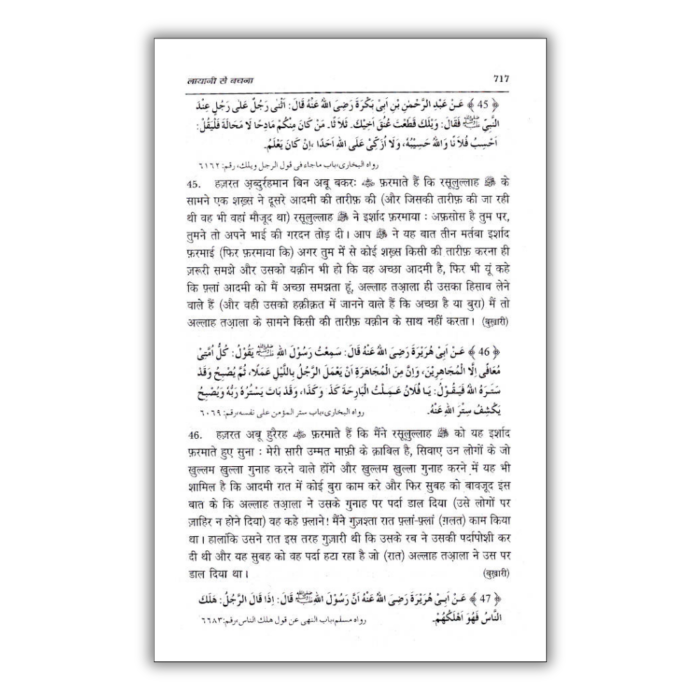 लायानी से बचना 717
﴿45﴾ عَنْ عَبْدِ الرَّحْمٰنِ بْنِ اَبِىْ بَكْرَةَ رَضِىَ اللهُ عَنْهُ قَالَ: اَثْنٰى رَجُلٌ عَلٰى رَجُلٍ عِنْدَ
النَّبِىِّ ﷺ فَقَالَ: وَيْلَكَ قَطَعْتَ عُنُقَ اَخِيْكَ. ثَلَا ثًا. مَنْ كَانَ مِنْكُمْ مَادِحًا لَا مَحَالَةَ فَلْيَقُلْ:
اَحْسِبُ فُلَا نًا وَاللهُ حَسِيْبُهُ، وَلَا اُزَكِّىْ عَلَى اللهِ اَحَدًا، اِنْ كَانَ يَعْلَمُ.
رواه البخارى،باب ماجاء فى قول الرجل ويلك، رقم: ٦١٦٢
45. हज़रत अ़ब्दुर्रहमान बिन अबू बकरः ؓ फ़रमाते हैं कि रसूलुल्लाह ﷺ के
सामने एक शख़्स ने दूसरे आदमी की तारीफ़ की (और जिसकी तारीफ़ की जा रही
थी वह भी वहां मौजूद था) रसूलुल्लाह ﷺ ने इर्शाद फ़रमाया : अफ़सोस है तुम पर,
तुमने तो अपने भाई की गरदन तोड़ दी। आप ﷺ ने यह बात तीन मर्तबा इर्शाद
फ़रमाई (फिर फ़रमाया कि) अगर तुम में से कोई शख़्स किसी की तारीफ़ करना ही
ज़रूरी समझे और उसको यक़ीन भी हो कि वह अच्छा आदमी है, फिर भी यूं कहे
कि फ़्लां आदमी को मैं अच्छा समझता हूं, अल्लाह तआ़ला ही उसका हिसाब लेने
वाले हैं (और वही उसको हक़ीक़त में जानने वाले हैं कि अच्छा है या बुरा) मैं तो
अल्लाह तआ़ला के सामने किसी की तारीफ़ यक़ीन के साथ नहीं करता। (बुख़ारी)
﴿46﴾ عَنْ اَبِىْ هُرَيْرَةَ رَضِىَ اللهُ عَنْهُ قَالَ: سَمِعْتُ رَسُوْلَ اللهِ ﷺ يَقُوْلُ: كُلُّ اُمَّتِىْ
مُعَافًى اِلَّا الْمُجَاهِرِيْنَ، وَاِنَّ مِنَ الْمُجَاهَرَةِ اَنْ يَعْمَلَ الرَّجُلُ بِاللَّيْلِ عَمَلًا، ثُمَّ يُصْبِحَ وَقَدْ
سَتَرَهُ اللهُ فَيَقُوْلُ: يَا فُلَانُ عَمِلْتُ الْبَارِحَةَ كَذَا وَكَذَا، وَقَدْ بَاتَ يَسْتُرُهُ رَبُّهُ وَيُصْبِحُ
يَكْشِفُ سِتْرَ اللهِ عَنْهُ. رواه البخارى،باب ستر المؤمن على نفسه،رقم:٦٠٦٩
46. हज़रत अबू हुरैरह ؓ फ़रमाते हैं कि मैंने रसूलुल्लाह ﷺ को यह इर्शाद
फ़रमाते हुए सुना : मेरी सारी उम्मत माफ़ी के क़ाबिल है, सिवाए उन लोगों के जो
खुल्लम खुल्ला गुनाह करने वाले होंगे और खुल्लम खुल्ला गुनाह करने में यह भी
शामिल है कि आदमी रात में कोई बुरा काम करे और फिर सुबह को बावजूद इस
बात के कि अल्लाह तआ़ला ने उसके गुनाह पर पर्दा डाल दिया (उसे लोगों पर
ज़ाहिर न होने दिया) वह कहे फ़्लाने! मैंने गुज़श्ता रात फ़्लां-फ़्लां (ग़लत) काम किया
था। हालांकि उसने रात इस तरह गुज़ारी थी कि उसके रब ने उसकी पर्दापोशी कर
दी थी और यह सुबह को वह पर्दा हटा रहा है जो (रात) अल्लाह तआ़ला ने उस पर
डाल दिया था। (बुख़ारी)
﴿47﴾ عَنْ اَبِىْ هُرَيْرَةَ رَضِىَ اللهُ عَنْهُ اَنَّ رَسُوْلَ اللهِ ﷺ قَالَ: اِذَا قَالَ الرَّجُلُ: هَلَكَ
النَّاسُ فَهُوَ اَهْلَكُهُمْ. رواه مسلم،باب النهى عن قول هلك الناس،رقم:٦٦٨٣